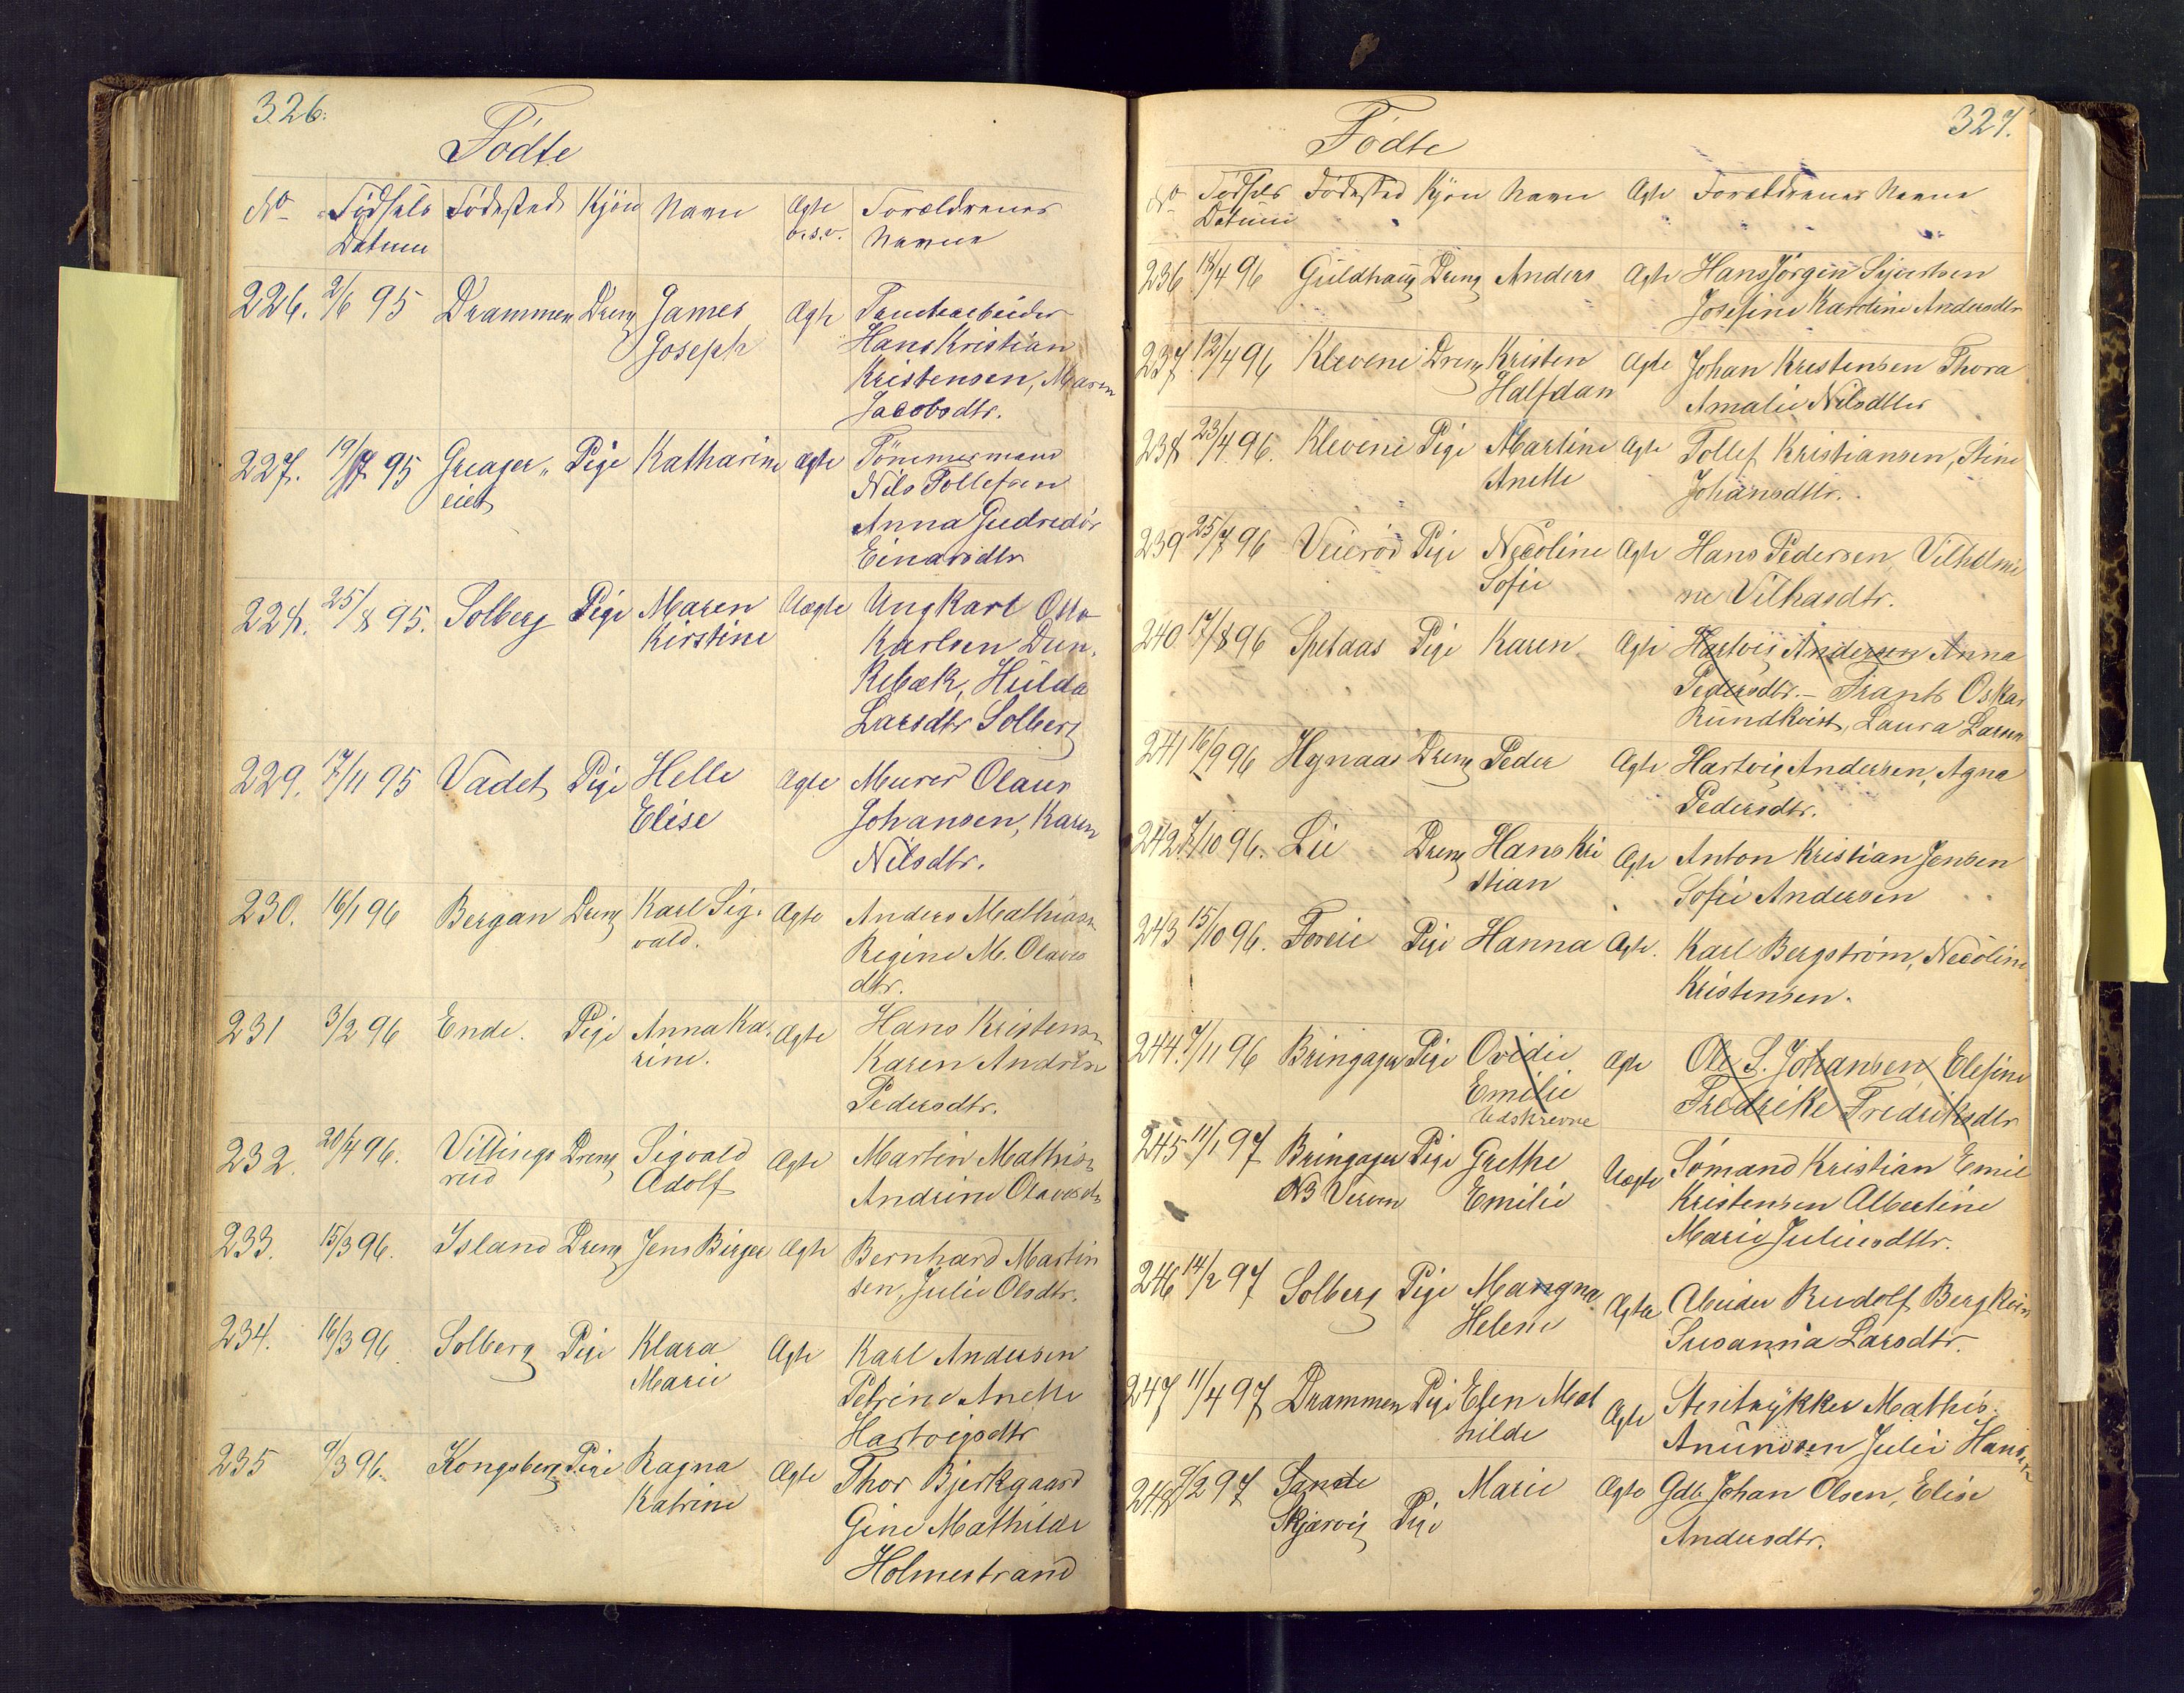 326.
Fødte
No Fødsels Datum Fødested Kjøn Navn Ægte o.s.v. Forældrenes Navne
226. 2/6 95 Drammen Dreng James Ægte
Joseph Hans Kristian
Kristensen, Maren
Jacobsdtr.
227. 19/7 95 Greager- Pige Katharine Ægte Tömmermand
eiet Nils Tollefsen
Anna Gudridör
Einarsdtr
228. 25/8 95. Solberg Pige Maren Uægte Ungkarl Otto
Kirstine Karlsen Dun-
Kebæk, Hulda
Larsdtr Solberg
229. 17/11 95 Vadet Pige Helle Ægte Murer Olaus
Elise Johansen, Karen
Nilsdtr.
230. 16/1 96 Bergan Dreng Karl Sig- Ægte Anders Mathiasen
vald. Regine M. Olavs
dtr.
231 3/2 96 Ende. Pige Anna Ka- Ægte Hans Kristensen
rine. Karen Andrea
Pedersdtr.
232. 20/4 96. Dreng Sigvald Ægte Martin Mathisen
Adolf Andrine Olavesdtr
233. 15/3 96. Island Dreng Jens Birger Ægte Bernhard Martin
sen, Julie Olsdtr.
234. 16/3 96 Solberg Pige Klara Ægte Karl Andersen
Marie Petrine Anette
Hartvigsdtr
235 9/3 96. Kongsberg Pige Ragna Ægte Thor Bjerkgaard
Katrine Gine Mathilde
Holmestrand
327.
Fødte
No Fødsels Datum Fødested Kjøn Navn Ægte Forældrenes Navne
236 18/4 96 Guldhaug Dreng Anders Ægte Hans Jörgen Syvertsen
Josefine Karoline Andersdtr
237. 12/4 96 Klevene Dreng Kristen Ægte Johan Kristensen Thora
Halfdan Amalie Nilsdtter
238 23/4 96. Klevene Pige Martine Ægte Tollef Kristiansen, Stine
Anette Johansdttr.
239 25/7 96 Veierød Pige Nicoline Ægte Hans Pedersen, Vilhelmi
Sofie ne Vilhasdtr.
240 17/8 96 Spetaas Pige Karen Ægte Hartvig Andersen Anna
Pedersdtr. - Frants Oskar
Rundkvist, Laura Larsen
241 16/9 96 Hynaas Dreng Peder Ægte Hartvig Andersen, Agna
Pedersdtr.
242 7/10 96. Lie Dreng Hans Kri Ægte Anton Kristian Jensen
stian Sofie Andersen
243 15/10 96. Foreie Pige Hanna Ægte. Karl Bergström, Nicoline
Kristensen.
244. 7/11 96 Bringager Pige Ovidie Ægte Ole S. Johansen Elefine
Emilie Fredrike Fredriksdtr
Udskrevne
245 11/1 97 Bringager Pige Grethe Uægte Sömand Kristian Emil
N3 Emilie Kristensen Albertine
Marie Juliusdttr.
246 14/2 97 Solberg Pige Mangna Ægte Arbeider Rudolf Bergkvin
Helene Susanna Larsdtr.
247 11/4 97 Drammen Pige Elen Mat Ægte Stentrykker Mathis
hilde Anundsen Julie Hansen
248 9/2 97 Sande Marie Ægte Gdb. Johan Olsen, Elise
Skjærvig Pige Andersdtr.